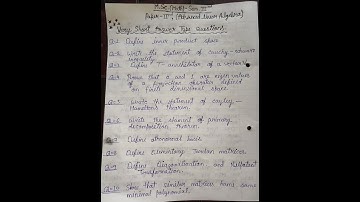 M.Sc. (Math)-Sem-II
Paper-III, (Advanced Linear Algebra)
Very Short Answer Type Questions
Q-1 Define Inner product space
Q-2 Write the statement of Cauchy-Schwarz
inequality
Q-3 Define T-annihilator of a vector
Q-4 Prove that 0 and 1 are eigen values
of a projection operator defined
on finite dimensional space
Q-5 Write the statement of Cayley-
Hamilton's Theorem.
Q-6 Write the statement of primary
decomposition theorem.
Q-7 Define orthonormal basis
Q-8 Define Elementary Jordan matrices
Q-9 Define Diagonalization and
Transformation.
Q-10 Show that similar matrices have same
minimal polynomial.